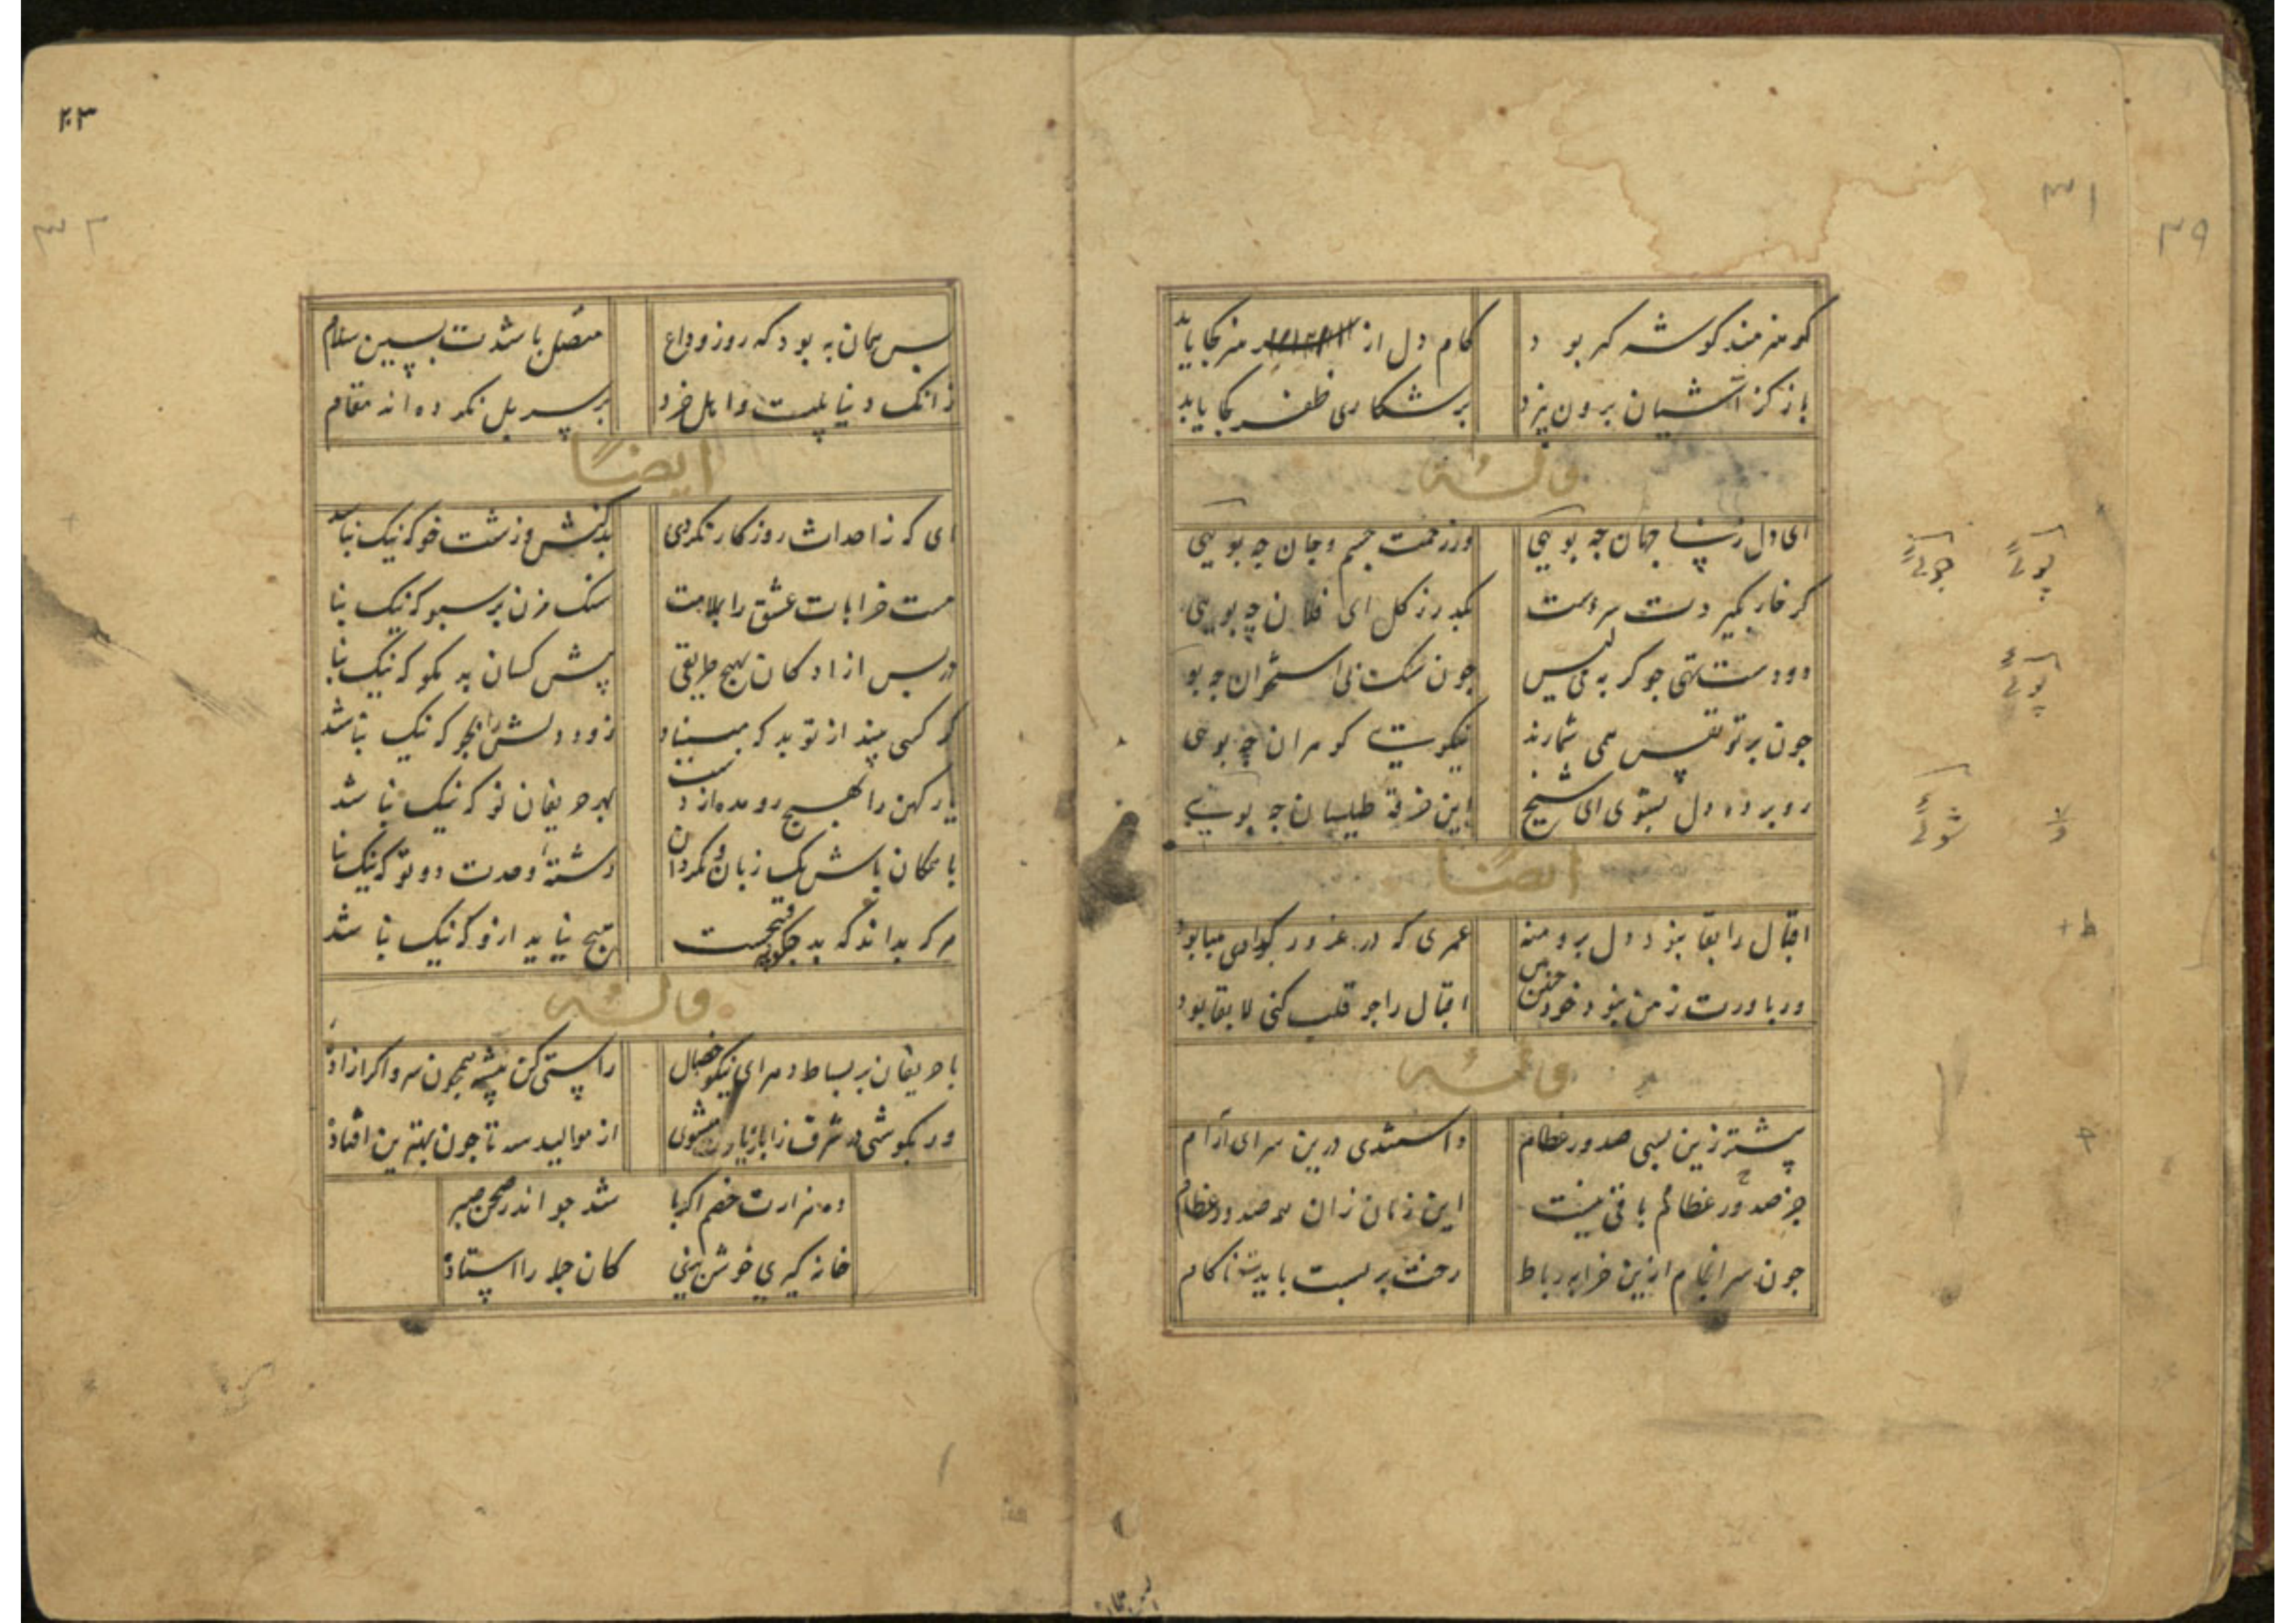 ۳۹
۳۱
کو هنرمند گوشه گیر بود کام دل از هنر کجا یابد
باز کز آشیان برون نپرد بر شکاری ظفر کجا یابد
وله
ای دل ز پی جهان چه پویی وز زحمت جسم و جان چه پویی
پوئی جوئی
گر خار بگیر دست سر مست بگذر ز گل ای فلان چه بویی
دو دست تهی چو گربه می لیس چون سگ پی استخوان چه پو
پوئی
چون بر تو نفس همی شمارند نیکویی گوهران چه بویی
رو برده دل بشوی ای شیخ این خرقه طیلسان چه شویی
شوئی
ایضا
اقبال را بقا نبود دل برو منه عمری که در غرور گذاری هبا بود
ور باورت ز من نبود خود اقبال را چو قلب کنی لا بقا بود
پیشتر زین بسی صدور عظام داشتندی درین سرای آرام
جز صدور عظام باقی نیست این زمان زان همه صدور عظام
چون سرانجام ازین خرابه رباط رخت بر بست باید ناکام
۲۳
۳۲
پس همان به بود که روز وداع متصل باشدت بپسین سلام
زانک دنیا پلیست و اهل خرد بر سر پل نکرده اند مقام
ایضا
ای که ز احداث روزگار نگردی بد کنش و زشت خو که نیک نبا
مست خرابات عشق را بملامت سنگ مزن بر سبو که نیک نبا
در پس آزادگان بهیچ طریقی پیش کسان بد مگو که نیک نبا
گر کسی بیند از تو بد که مبیناد زود دلش را بجو که نیک نباشد
یار کهن را بهیچ رو مده از دست بهر حریفان نو که نیک نباشد
با همگان باش یک زبان و مگردان رشته وحدت دو تو که نیک نبا
هر که بداند که بد چگونه هیچ نیاید ازو که نیک نباشد
وله
با حریفان بر بساط دهر ای نیکو خصال راستی کن پیشه همچون سرو اگر آزاده
ور بکوشی در شرف از موالید سه تا چون بهترین افتاده
ده هزارت خصم اگر با شد چو اندر صحن صبر
خانه گیری خوش بینی کان جمله را استاده